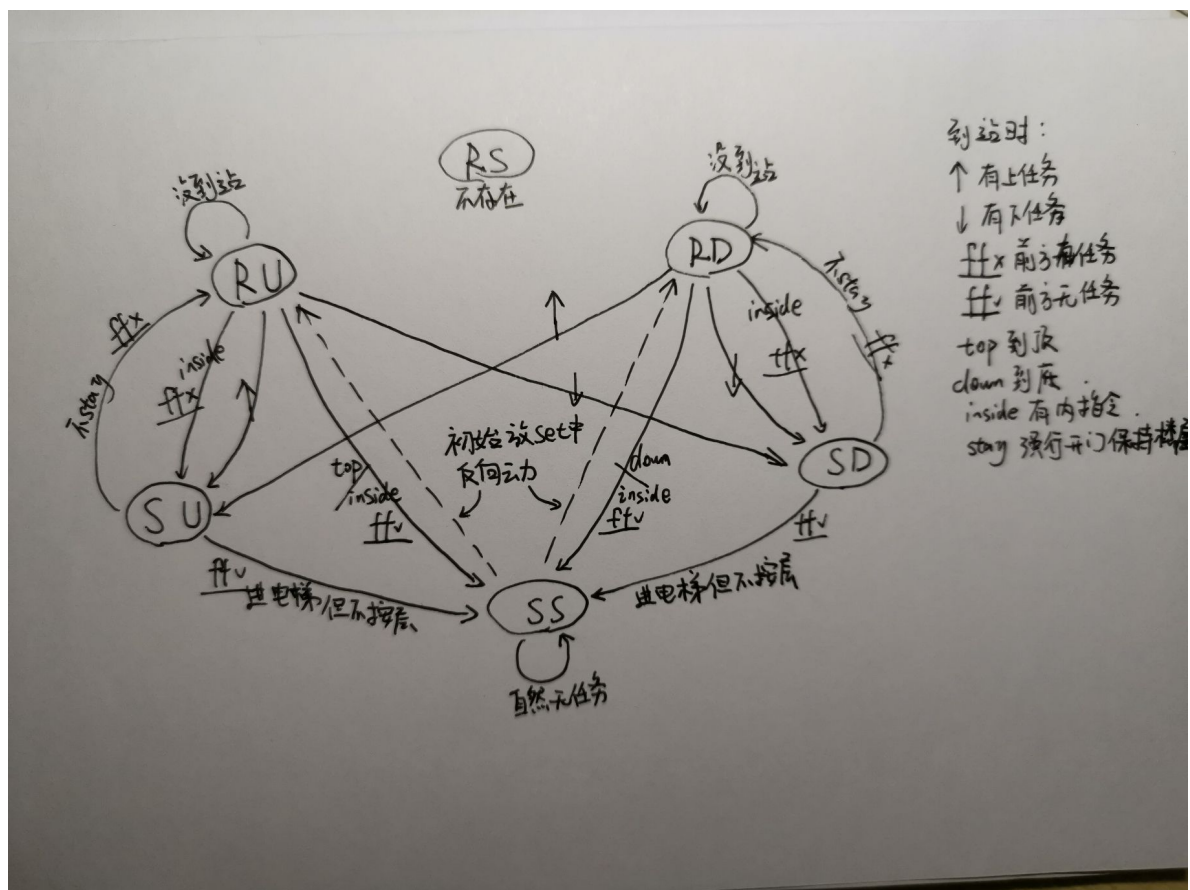 RS
不存在
没到站
没到站
RU
RD
ff×
不stay
inside
ff×
↑
↑
↓
inside
ff×
↓
不stay
ff×
初始放set中
反向动力
top
inside
ff✓
down
inside
ff✓
SU
SD
ff✓
进电梯但不按层
ff✓
进电梯但不按层
SS
自然无任务
到站时:
↑ 有上任务
↓ 有下任务
ff× 前方有任务
ff✓ 前方无任务
top 到顶
down 到底.
inside 有内指令.
stay 强行开门保持楼层